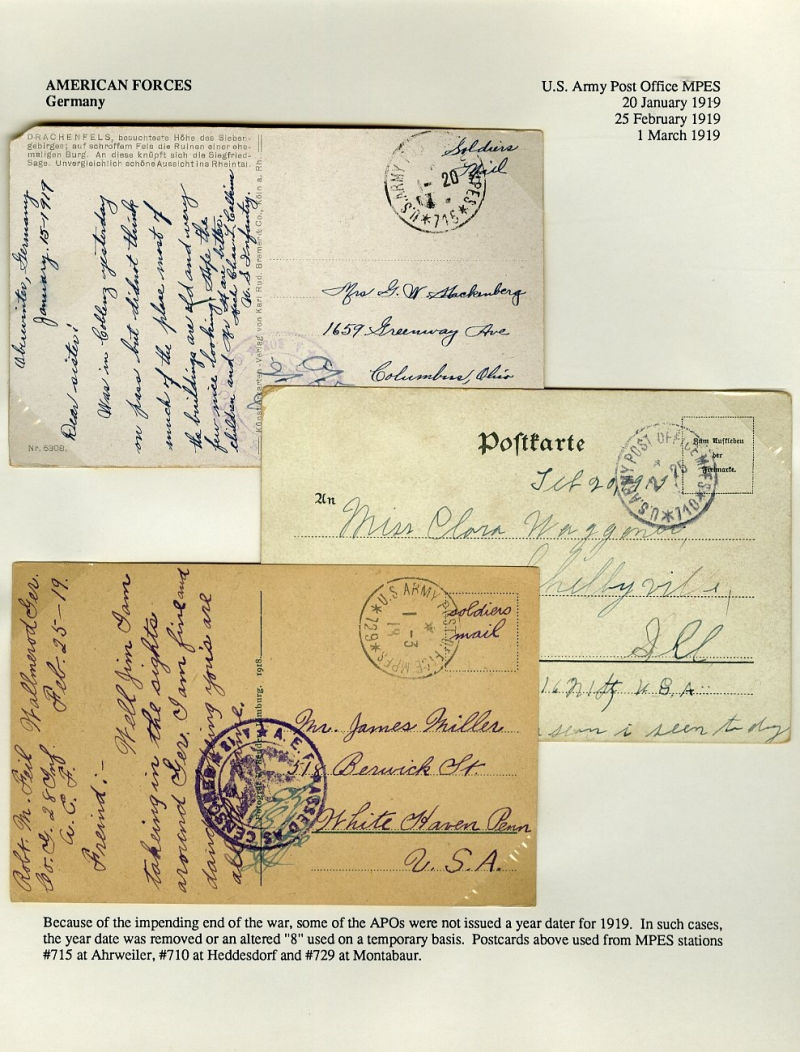 AMERICAN FORCES
Germany
U.S. Army Post Office MPES
20 January 1919
25 February 1919
1 March 1919
DRACHENFELS, besuchteste Höhe des Sieben-
gebirges; auf schroffem Fels die Ruinen einer ehe-
maligen Burg. An diese knüpft sich die Siegfried-
Sage. Unvergleichlich schöne Aussicht ins Rheintal.
Oberwinter, Germany
January. 15-1919
Dear sister:
Was in Coblenz yesterday
on pass but did not think
much of the place most of
the buildings are old and very
few nice looking. Hope the
children and are better.
U.S. Infantry.
Nr. 6308.
Verlag von Karl Rud. Bremer & Co., Köln a. Rh.
Soldiers
Mail
U.S. ARMY MPES
20
*715*
Mrs G. W. Stackenberg
1659 Greenway Ave
Columbus, Ohio
Postkarte
Zum Aufkleben
der
Freimarke.
U.S. ARMY POST OFFICE MPES
2 25
*710*
An
Miss Clara Waggoner,
Shelbyville,
Ill
U.S.A.
soon i seen to day
Robt. M. Feil Wallmerod Ger.
Co. G. 28 Inf Feb-25-19.
A. E. F.
Freind:-
Well Jim I am
takeing in the sights
around Ger. I am fine and
yours are
1918.
U.S ARMY POST OFFICE MPES
1-3
18
*729*
soldiers
mail
A.E.F. PASSED AS CENSORED
Mr. James Miller
518 Berwick St.
White Haven Penn
U.S.A.
Because of the impending end of the war, some of the APOs were not issued a year dater for 1919. In such cases,
the year date was removed or an altered "8" used on a temporary basis. Postcards above used from MPES stations
#715 at Ahrweiler, #710 at Heddesdorf and #729 at Montabaur.